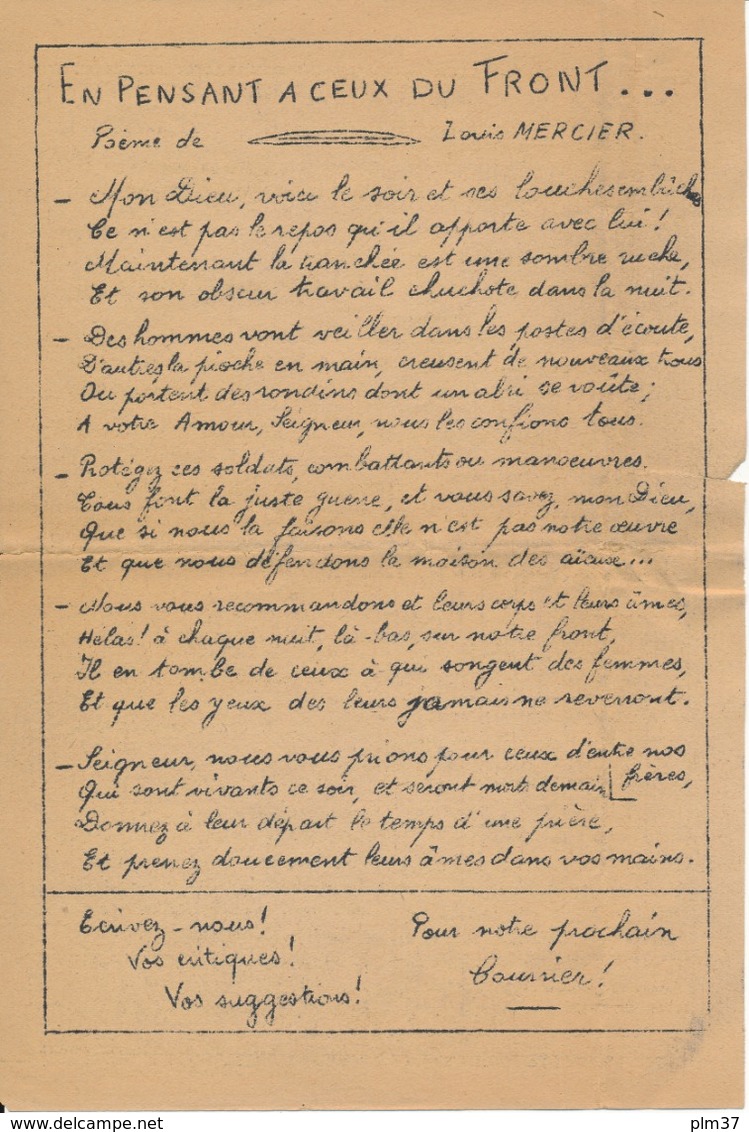 EN PENSANT A CEUX DU FRONT...
Poème de Louis MERCIER.
- Mon Dieu, voici le soir et ses louches embûches
Ce n'est pas le repos qu'il apporte avec lui!
Maintenant la tranchée est une sombre ruche,
Et son obscur travail chuchote dans la nuit.
- Des hommes vont veiller dans les postes d'écoute,
D'autres, la pioche en main, creusent de nouveaux trous
Ou portent des rondins dont un abri se voûte;
A votre Amour, Seigneur, nous les confions tous.
- Protégez ces soldats, combattants ou manoeuvres.
Tous font la juste guerre, et vous savez, mon Dieu,
Que si nous la faisons elle n'est pas notre œuvre
Et que nous défendons la maison des aïeux...
- Nous vous recommandons et leurs corps et leurs âmes,
Hélas! à chaque nuit, là-bas, sur notre front,
Il en tombe de ceux à qui songent des femmes,
Et que les yeux des leurs jamais ne reverront.
- Seigneur, nous vous prions pour ceux d'entre nos
frères,
Qui sont vivants ce soir, et seront morts demain
Donnez à leur départ le temps d'une prière,
Et prenez doucement leurs âmes dans vos mains.
Ecrivez-nous!
Vos critiques!
Vos suggestions!
Pour notre prochain
Courrier!
plm37
www.delcampe.net